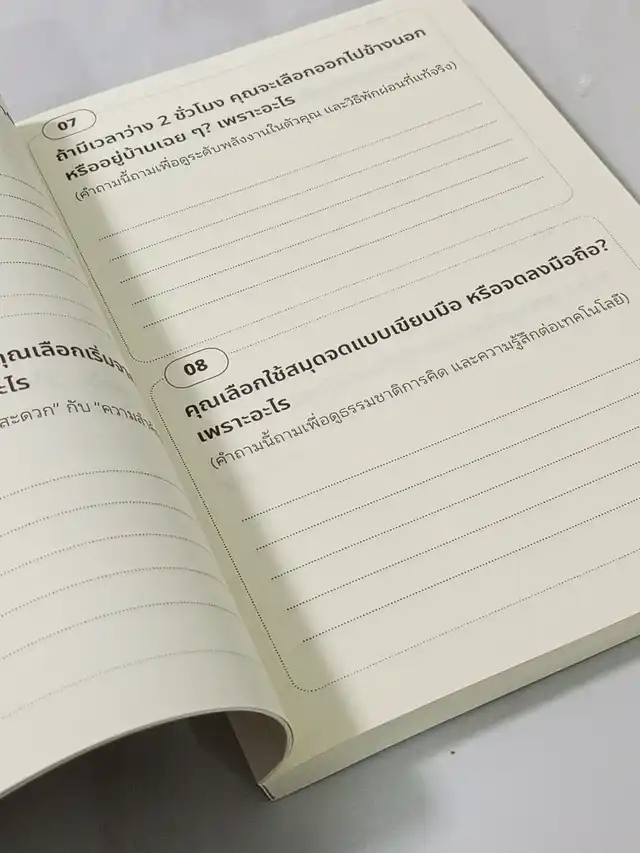 07
ถ้ามีเวลาว่าง 2 ชั่วโมง คุณจะเลือกออกไปข้างนอก
หรืออยู่บ้านเฉย ๆ? เพราะอะไร
(คำถามนี้ถามเพื่อดูระดับพลังงานในตัวคุณ และวิธีพักผ่อนที่แท้จริง)
08
คุณเลือกใช้สมุดจดแบบเขียนมือ หรือจดลงมือถือ?
เพราะอะไร
(คำถามนี้ถามเพื่อดูธรรมชาติการคิด และความรู้สึกต่อเทคโนโลยี)
คุณเลือกเริ่ม
สะดวก” กับ